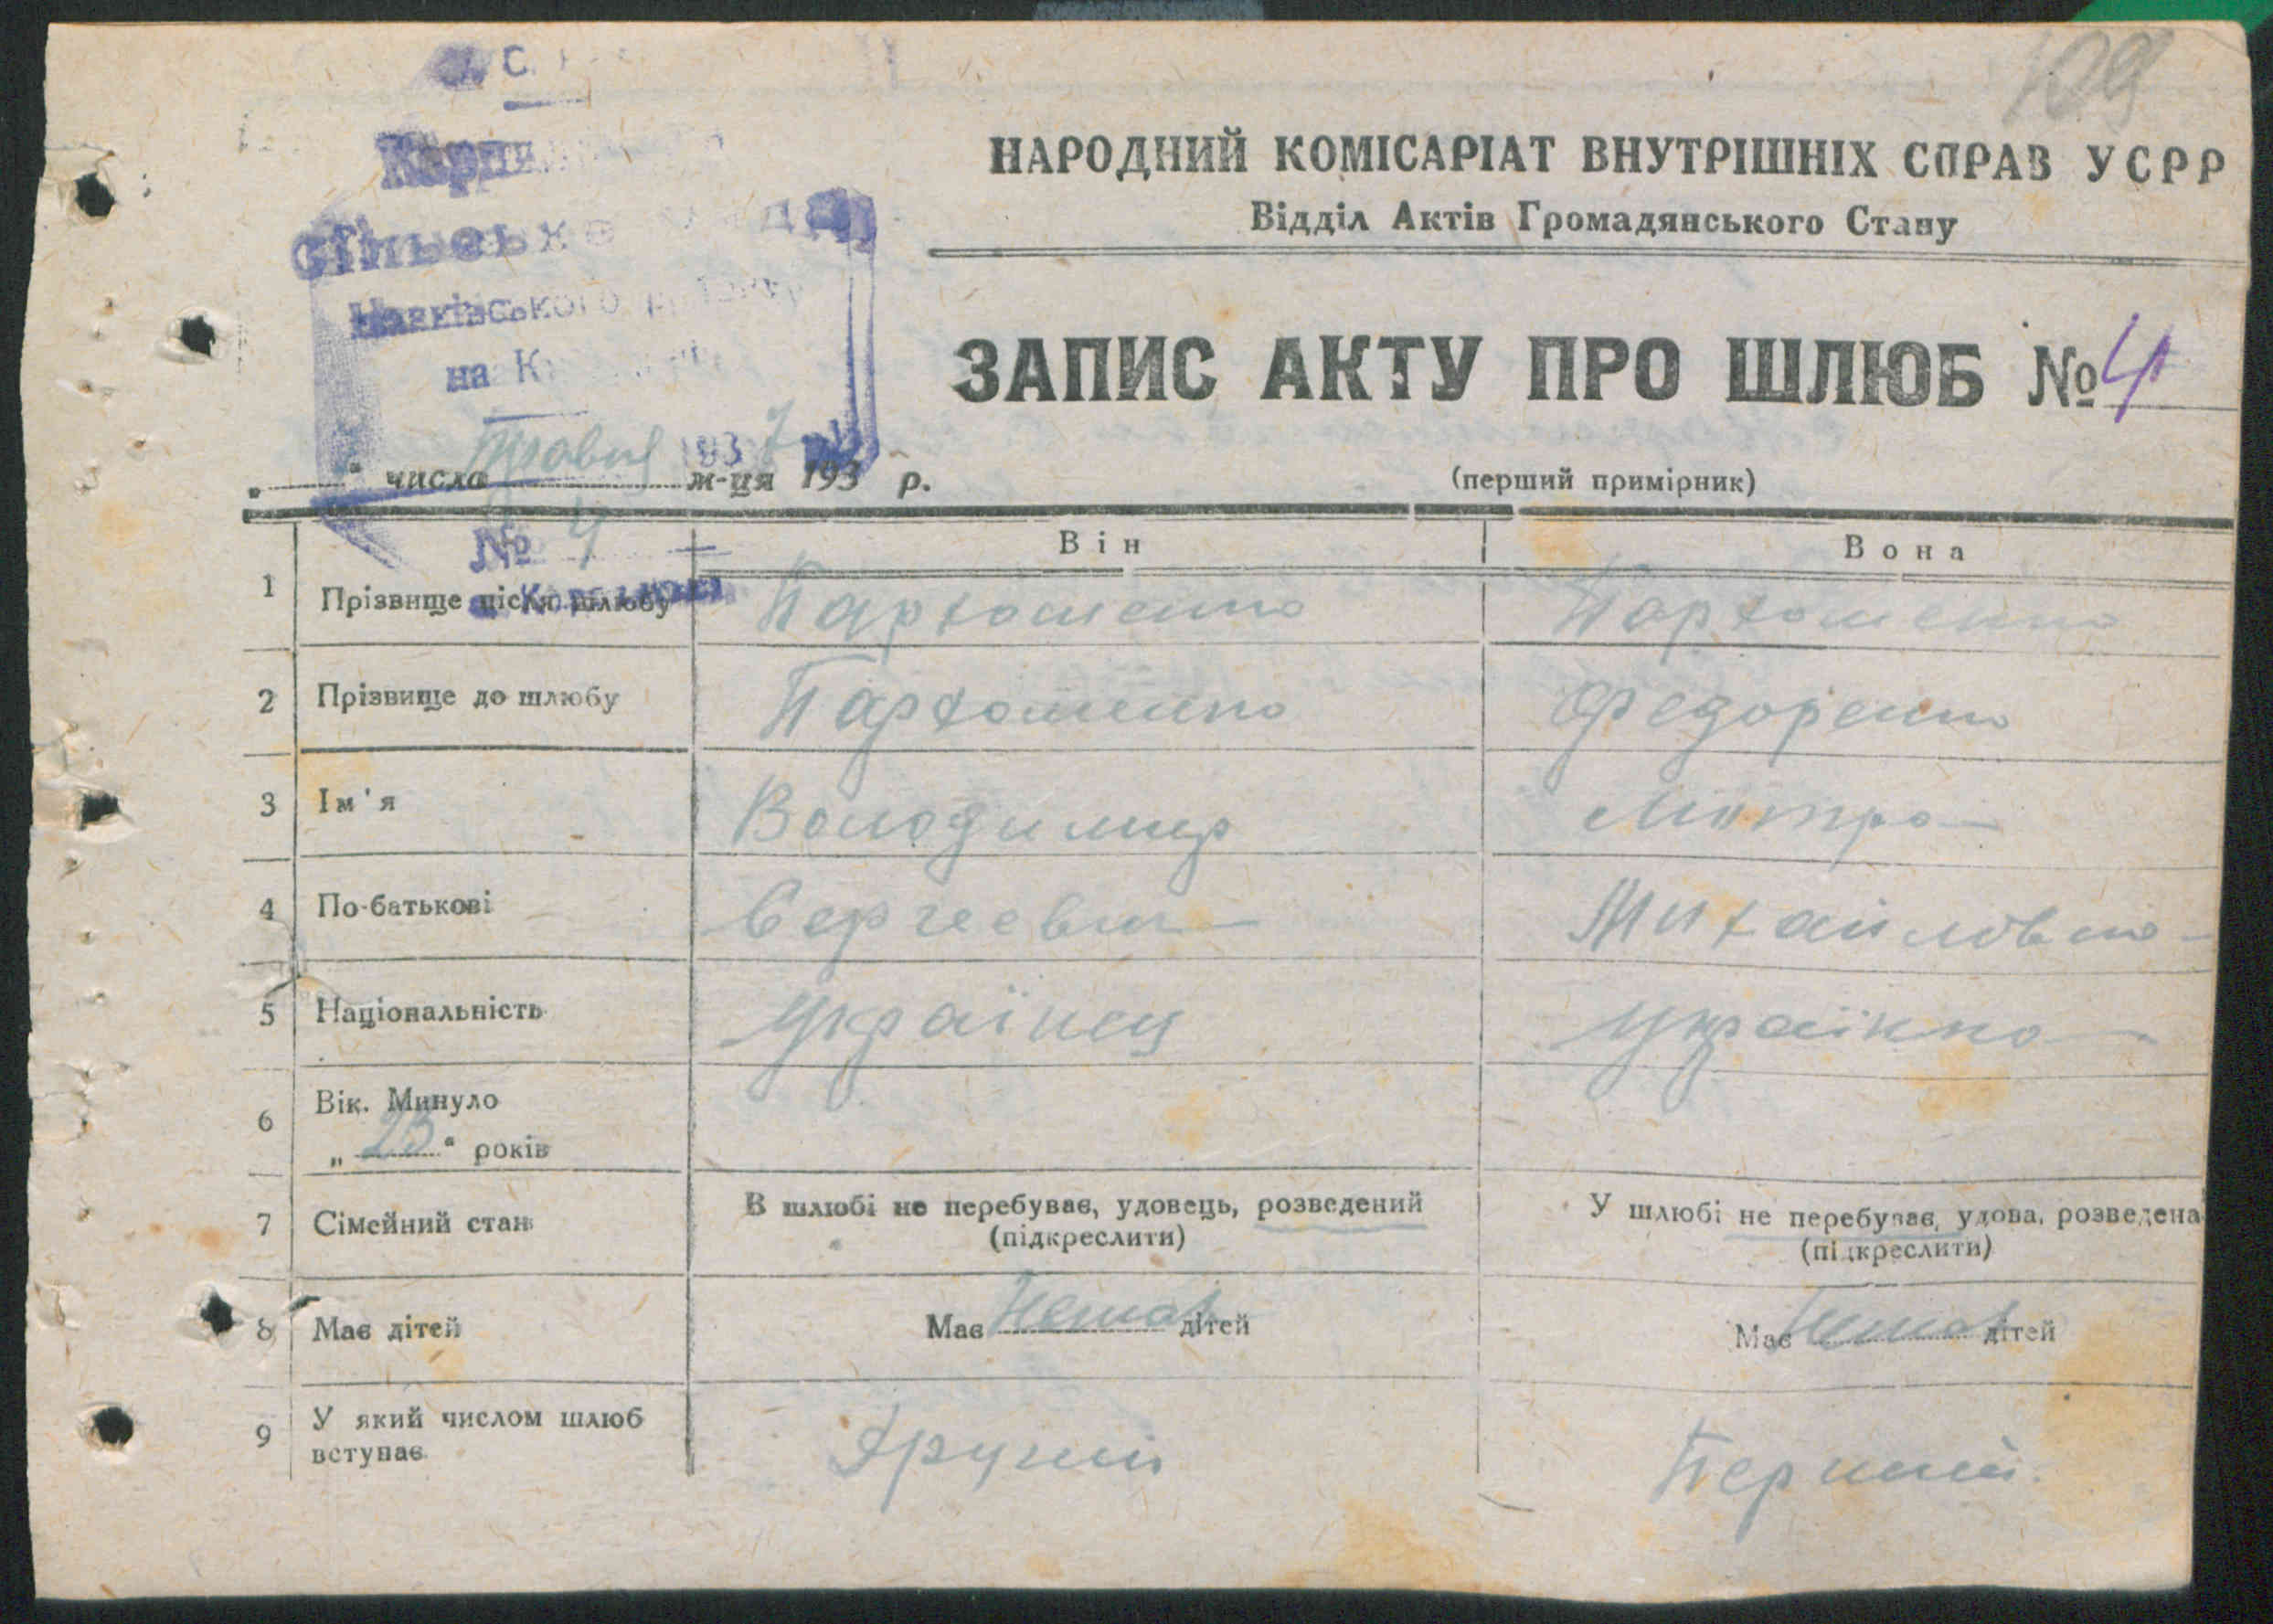 109
НАРОДНИЙ КОМІСАРІАТ ВНУТРІШНІХ СПРАВ УСРР
Відділ Актів Громадянського Стану
ЗАПИС АКТУ ПРО ШЛЮБ № 4
(перший примірник)
на
травня 1937
„ “ числа м-ця 193 р.
№ 4
Він Вона
1 Прізвище після шлюбу Пархоменко Пархоменко
2 Прізвище до шлюбу Пархоменко Федоренко
3 Ім'я Володимир
4 По-батькові Сергеевич Михайловна
5 Національність Українец Українка
6 Вік. Минуло
„ 23 “ років
7 Сімейний стан В шлюбі не перебуває, удовець, розведений У шлюбі не перебуває, удова, розведена
(підкреслити) (підкреслити)
8 Має дітей Має Немає дітей Має Немає дітей
9 У який числом шлюб Другий Перший
вступає